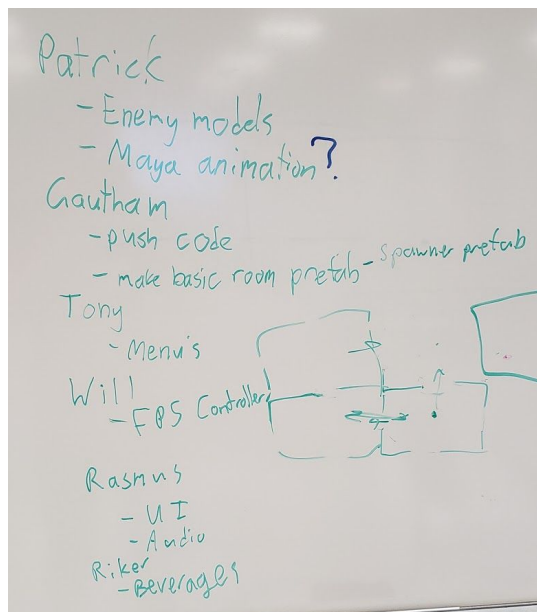 Patrick
- Enemy models
- Maya animation?
Gautham
- push code
- make basic room prefab - Spawner prefab
Tony
- Menu's
Will
- FPS Controller
Rasmus
- UI
- Audio
Riker
- Beverages